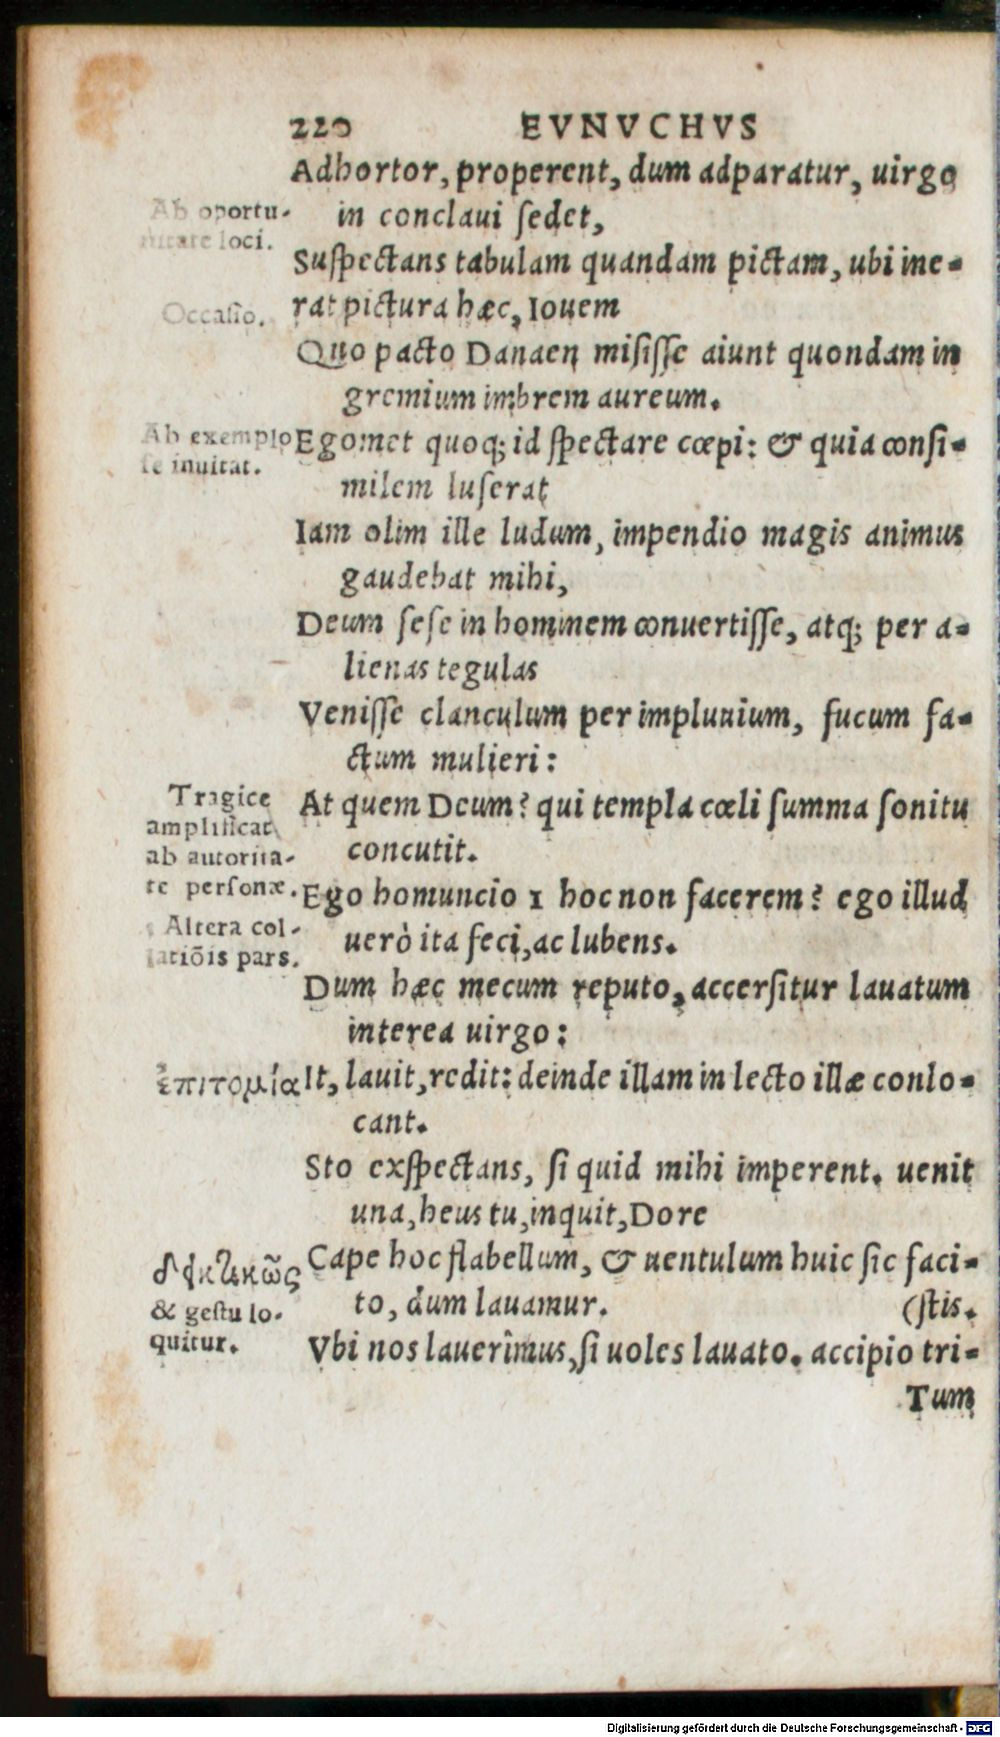 220 EVNVCHVS
Adhortor, properent, dum adparatur, uirgo
Ab oportu-
in conclaui ſedet,
nitate loci.
Suſpectans tabulam quandam pictam, ubi ine-
Occaſio.
rat pictura hæc, Iouem
Quo pacto Danaen miſiſſe aiunt quondam in
gremium imbrem aureum.
Ab exemplo
ſe inuitat.
Egomet quoq; id ſpectare cœpi: & quia conſi-
milem luſerat
Iam olim ille ludum, impendio magis animus
gaudebat mihi,
Deum ſeſe in hominem conuertiſſe, atq; per a-
lienas tegulas
Veniſſe clanculum per impluuium, fucum fa-
ctum mulieri:
Tragice
amplificat
ab autorita-
te perſonæ.
At quem Deum? qui templa cœli ſumma ſonitu
concutit.
Altera col-
latiõis pars.
Ego homuncio 1 hoc non facerem? ego illud
uerò ita feci, ac lubens.
Dum hæc mecum reputo, accerſitur lauatum
interea uirgo:
ἐπιτομία
It, lauit, redit: deinde illam in lecto illæ conlo-
cant.
Sto exſpectans, ſi quid mihi imperent. uenit
una, heus tu, inquit, Dore
& geſtu lo-
quitur.
Cape hoc flabellum, & uentulum huic ſic faci-
to, dum lauamur. (ſtis.
Vbi nos lauerîmus, ſi uoles lauato. accipio tri-
Tum
Digitalisierung gefördert durch die Deutsche Forschungsgemeinschaft - DFG